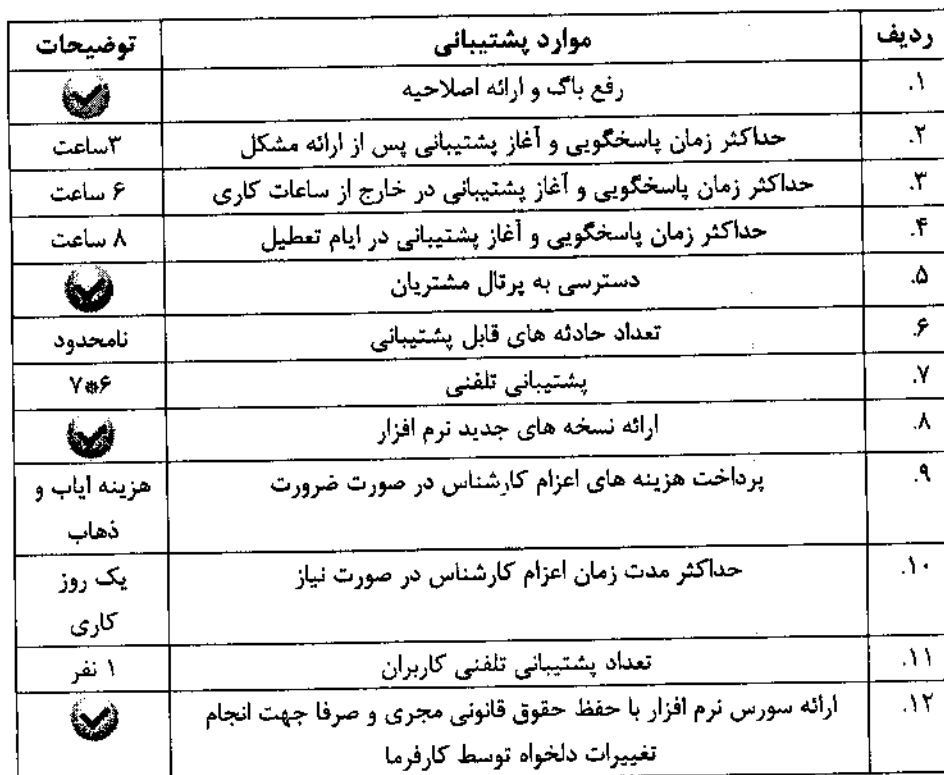 ردیف موارد پشتیبانی توضیحات
۱. رفع باگ و ارائه اصلاحیه
۲. حداکثر زمان پاسخگویی و آغاز پشتیبانی پس از ارائه مشکل ۳ساعت
۳. حداکثر زمان پاسخگویی و آغاز پشتیبانی در خارج از ساعات کاری ۶ ساعت
۴. حداکثر زمان پاسخگویی و آغاز پشتیبانی در ایام تعطیل ۸ ساعت
۵. دسترسی به پرتال مشتریان
۶. تعداد حادثه های قابل پشتیبانی نامحدود
۷. پشتیبانی تلفنی ۷*۶
۸. ارائه نسخه های جدید نرم افزار
۹. پرداخت هزینه های اعزام کارشناس در صورت ضرورت هزینه ایاب و
ذهاب
۱۰. حداکثر مدت زمان اعزام کارشناس در صورت نیاز یک روز
کاری
۱۱. تعداد پشتیبانی تلفنی کاربران ۱ نفر
۱۲. ارائه سورس نرم افزار با حفظ حقوق قانونی مجری و صرفا جهت انجام
تغییرات دلخواه توسط کارفرما